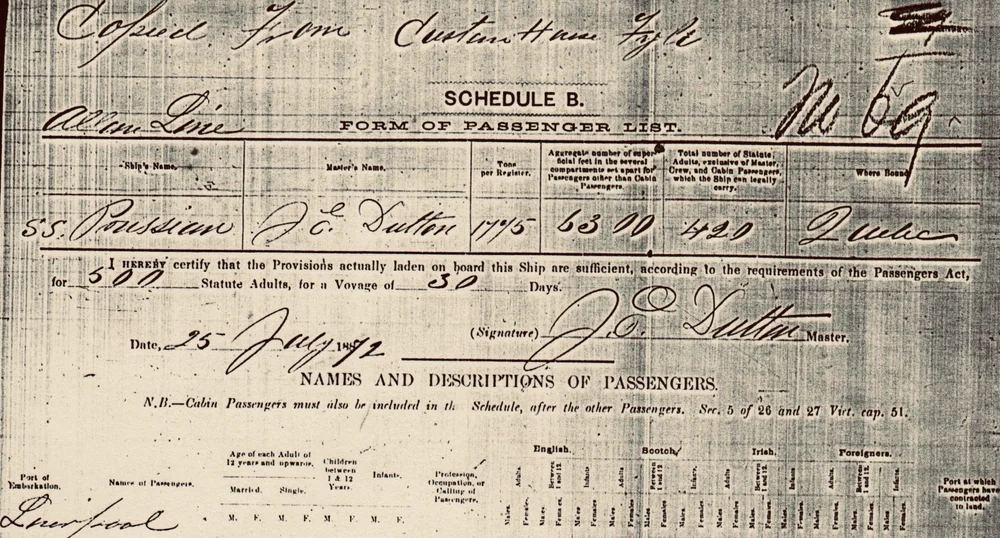 Copied From Custom House Fyle
SCHEDULE B.
Allan Line
FORM OF PASSENGER LIST.
No 69
Ship's Name. Master's Name. Tons per Register. Aggregate number of superficial feet in the several compartments set apart for Passengers other than Cabin Passengers. Total number of Statute Adults, exclusive of Master, Crew, and Cabin Passengers, which the Ship can legally carry. Where Bound
S.S. Prussian J E Dutton 1775 6300 420 Quebec
I HEREBY certify that the Provisions actually laden on board this Ship are sufficient, according to the requirements of the Passengers Act,
for 500 Statute Adults, for a Voyage of 30 Days.
(Signature) J. E. Dutton Master.
Date, 25 July 1872
NAMES AND DESCRIPTIONS OF PASSENGERS.
N.B.—Cabin Passengers must also be included in th Schedule, after the other Passengers. Sec. 5 of 26 and 27 Vict. cap. 51.
English. Scotch. Irish. Foreigners.
Port of Embarkation. Names of Passengers. Age of each Adult of 12 years and upwards. Children between 1 & 12 Years. Infants. Profession, Occupation, or Calling of Passengers. Port at which Passengers have contracted to land.
Married. Single.
Adults. Between 1 and 12. Infants Adults Between 1 and 12 Infants Adults Between 1 and 12. Infants Adults. Between 1 and 12. Infants.
M. F. M. F. M. F. M. F. Males Females. Males Females. Males Females. Males Females Males Females Males Females Males Females Males Females Males Females. Males Females Males Females. Males Females.
Liverpool